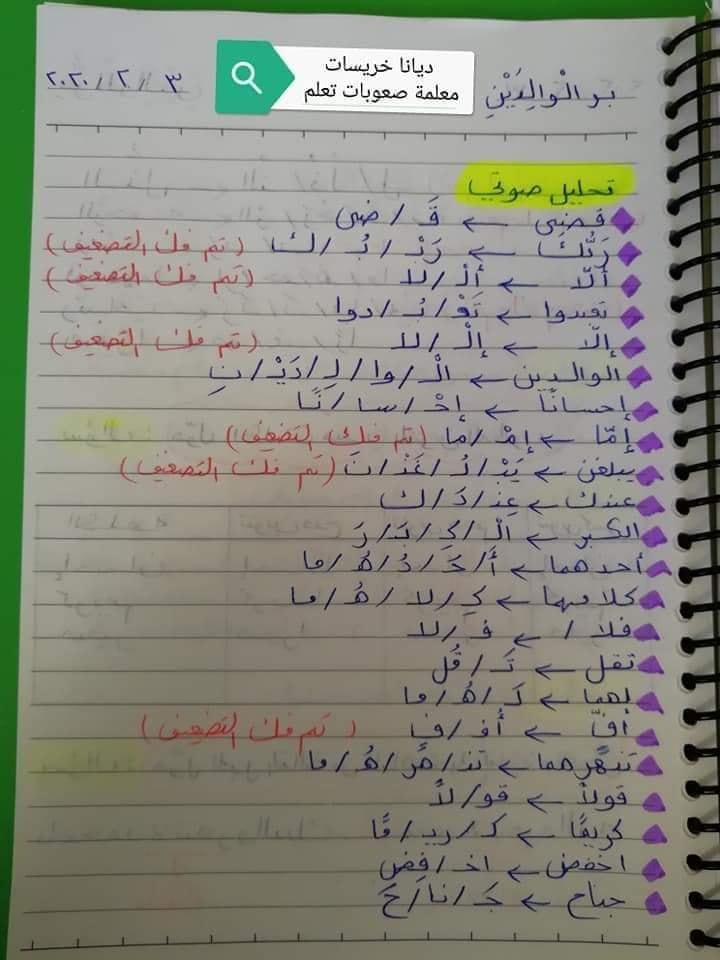 ديانا خريسات
معلمة صعوبات تعلم
بر الْوالِدَيْنِ ٣ / ٢ / ٢٠٢٠
تحليل صوتي
قضى ← قَ / ضى
رَبُّكَ ← رَبْ / بُ / كَ (تم فك التضعيف)
ألّا ← ألْ / لا (تم فك التضعيف)
تعبدوا ← تَعْ / بُ / دوا
إلّا ← إلْ / لا (تم فك التضعيف)
الوالدين ← الْ / وا / لِ / دَيْ / نِ
إحسانًا ← إحْ / سا / نًا
إمّا ← إمْ / ما (تم فك التضعيف)
يبلغن ← يَبْ / لُ / غَنْ / نَ (تم فك التضعيف)
عندك ← عِنـ / دَ / ك
الكبر ← الْ / كِ / بَـ / رَ
أحدهما ← أَ / حَـ / دُ / هُـ / ما
كلاهما ← كِـ / لا / هُـ / ما
فلا / ← فـَ / لا
تقل ← تَـ / قُل
لهما ← لَـ / هُـ / ما
أفّ ← أُفـ / فٍ (تم فك التضعيف)
تنهرهما ← تنـ / هَر / هُـ / ما
قولاً ← قو / لاً
كريمًا ← كـَ / ريـ / مًا
اخفض ← اخـ / فِض
جناح ← جَـ / نا / حَ